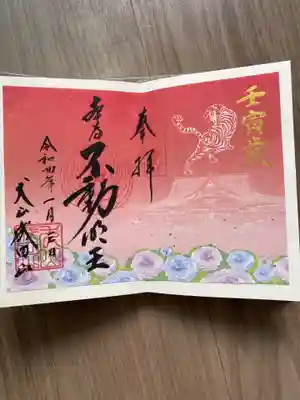 壬寅歳
奉拝
不動明王
令和四年一月
犬山成田山